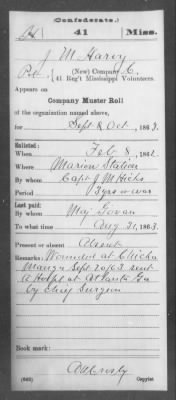 (Confederate.)
41 Miss.
J M Harvy
Pvt., (New) Company C,
41 Reg't Mississippi Volunteers.
Appears on
Company Muster Roll
of the organization named above,
for Sept & Oct, 1863.
Enlisted:
When Feb 8, 1862
Where Marion Station
By whom Capt J M Hicks
Period 3 yrs or war
Last paid:
By whom Maj Govan
To what time Aug 31, 1863.
Present or absent Absent
Remarks: Wounded at Chicka
Manga Sept 20 63 sent
to Hospital at Atlanta Ga
by Chief Surgeon
Book mark:
(642) Copyist